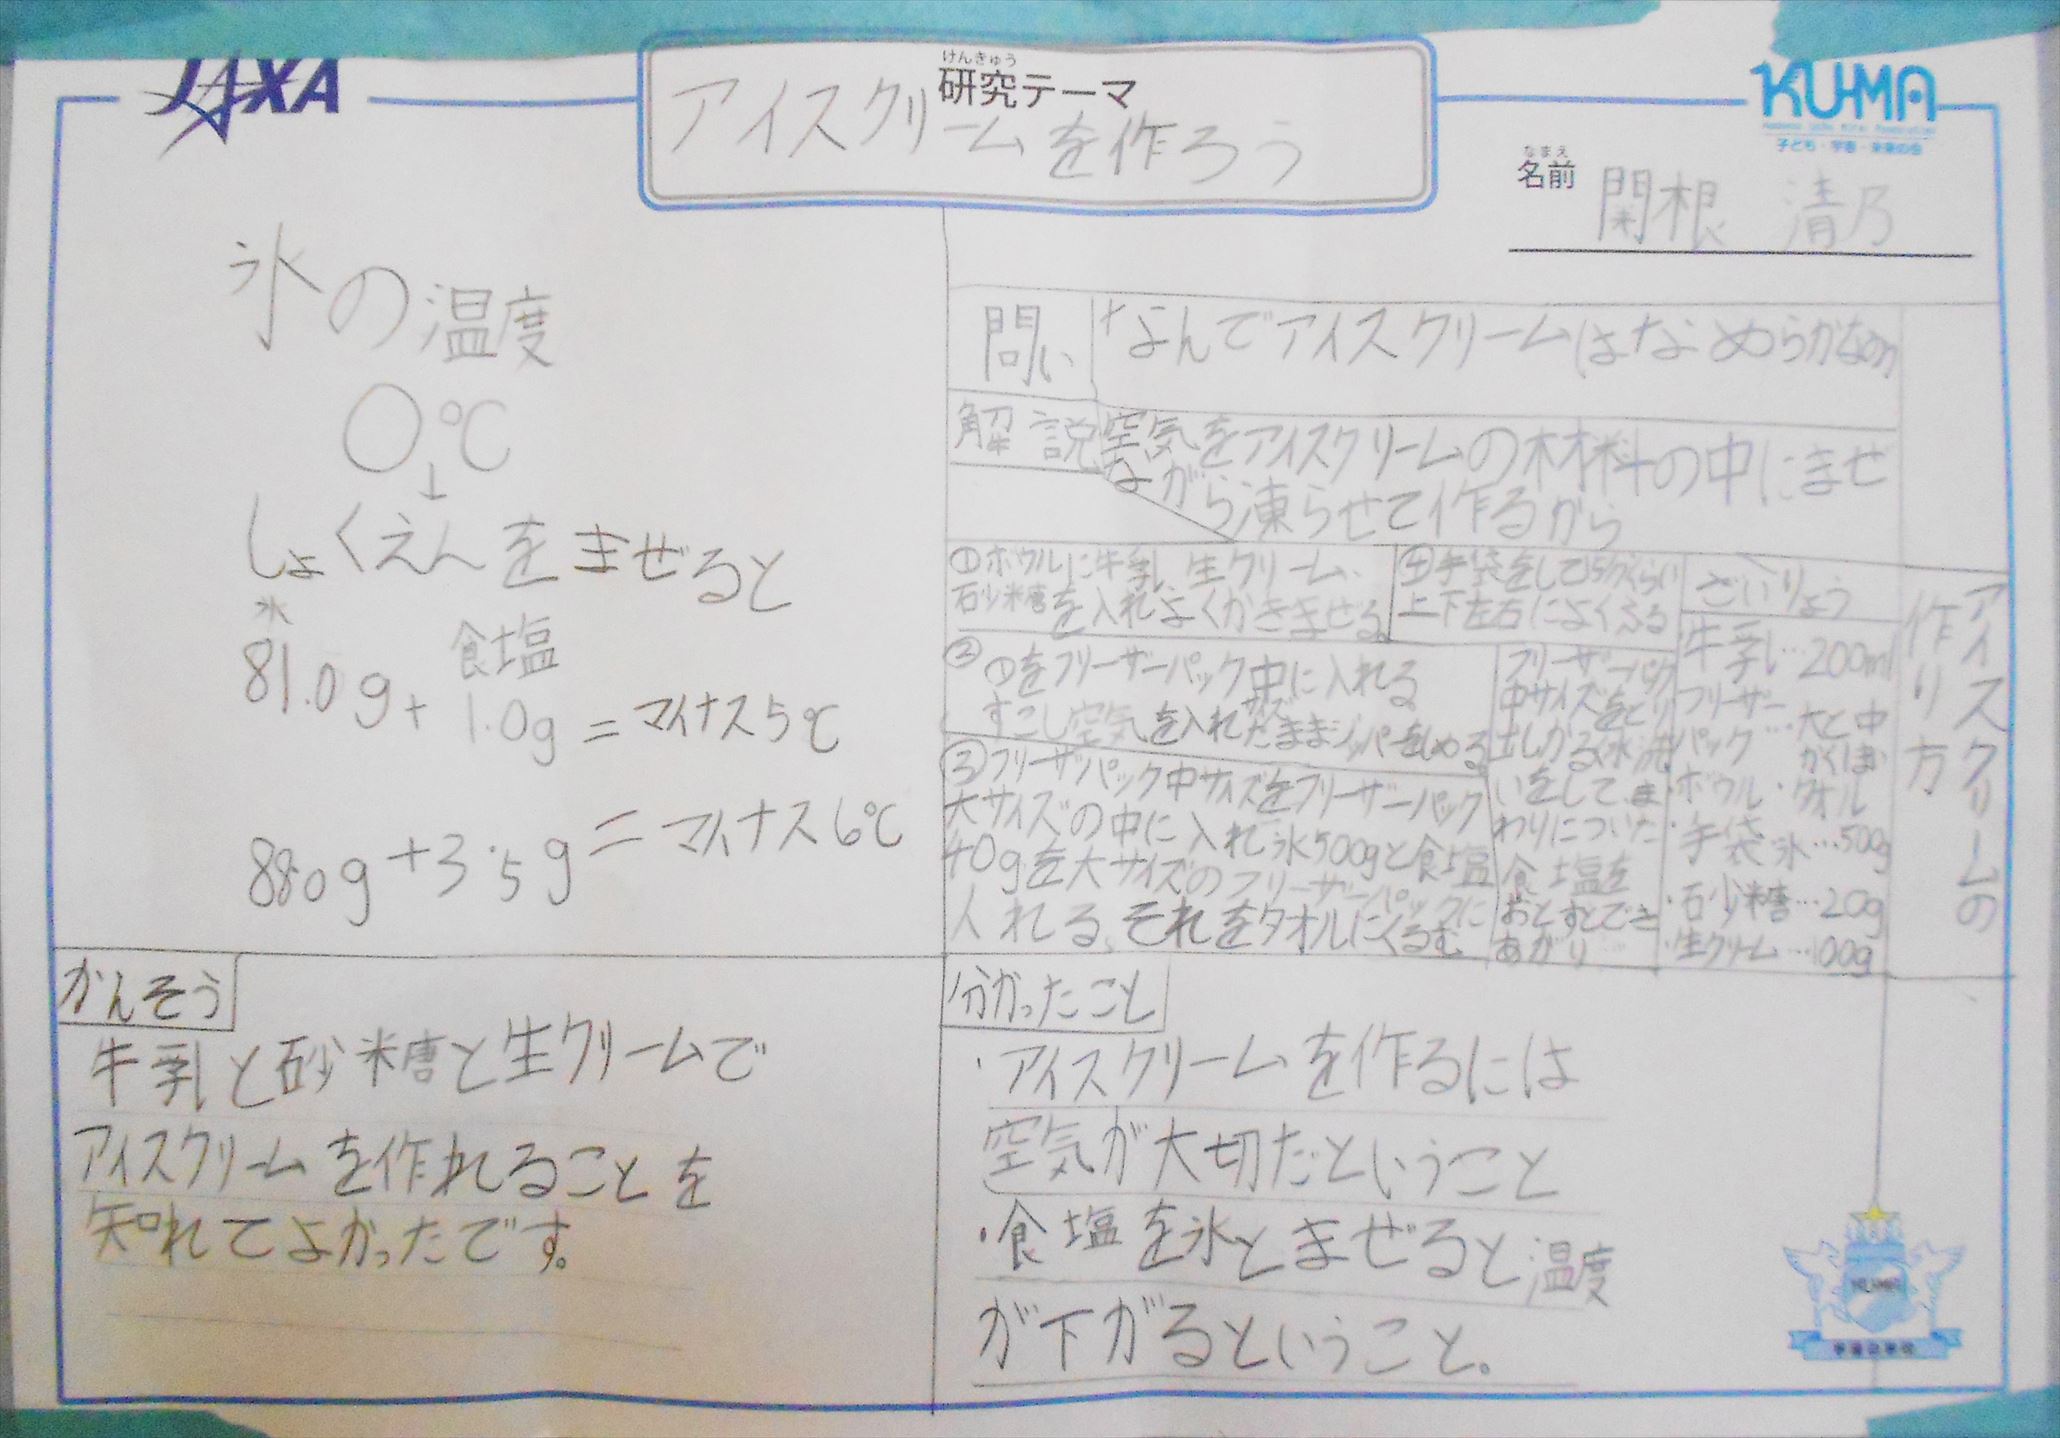 JAXA
けんきゅう
研究テーマ
アイスクリームを作ろう
KU-MA
子ども・宇宙・未来の会
なまえ
名前
関根 清乃
氷の温度
0℃
↓
しょくえんをまぜると
氷
食塩
81.0g+1.0g=マイナス5℃
88.0g+3.5g=マイナス6℃
問い
なんでアイスクリームはなめらかなの
解説
空気をアイスクリームの材料の中にませ
ながら凍らせて作るから
アイスクリームの
作り方
①ボウルに牛乳、生クリーム、
石少糖を入れよくかきまぜる。
②①をフリーザーパック中に入れる
サイズ
すこし空気を入れたままジッパーをしめる。
③フリーザーパック中サイズをフリーザーパック
大サイズの中に入れ氷500gと食塩
40gを大サイズのフリーザーパックに
入れる、それをタオルにくるむ
④手袋をして15分くらい
上下左右によくふる
フリーザーパック
中サイズをとり
出しかるく水洗
いをして、ま
わりについた
食塩を
おとすとでき
あがり
ざいりょう
牛乳…200ml
フリーザー
パック…大と中
ボウル・タオル
・手袋 氷…500g
・石少糖…20g
・生クリーム…100g
かんそう
牛乳と砂糖と生クリームで
アイスクリームを作れることを
知れてよかったです。
分かったこと
・アイスクリームを作るには
空気が大切だということ
・食塩を氷とまぜると温度
が下がるということ。
KU-MA
宇宙の学校